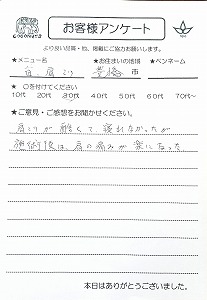 お客様アンケート
より良い商品・役、掲載にご協力お願いします。
★メニュー名 ★お住まいの地域 ★ペンネーム
首、肩こり 豊橋 市
★ ○を付けてください
10代 20代 30代 40代 50代 60代 70代～
★ご意見・ご感想をお聞かせください。
肩こりが酷くて、寝れなかったが
施術後は、肩の痛みが楽になった
本日はありがとうございました。